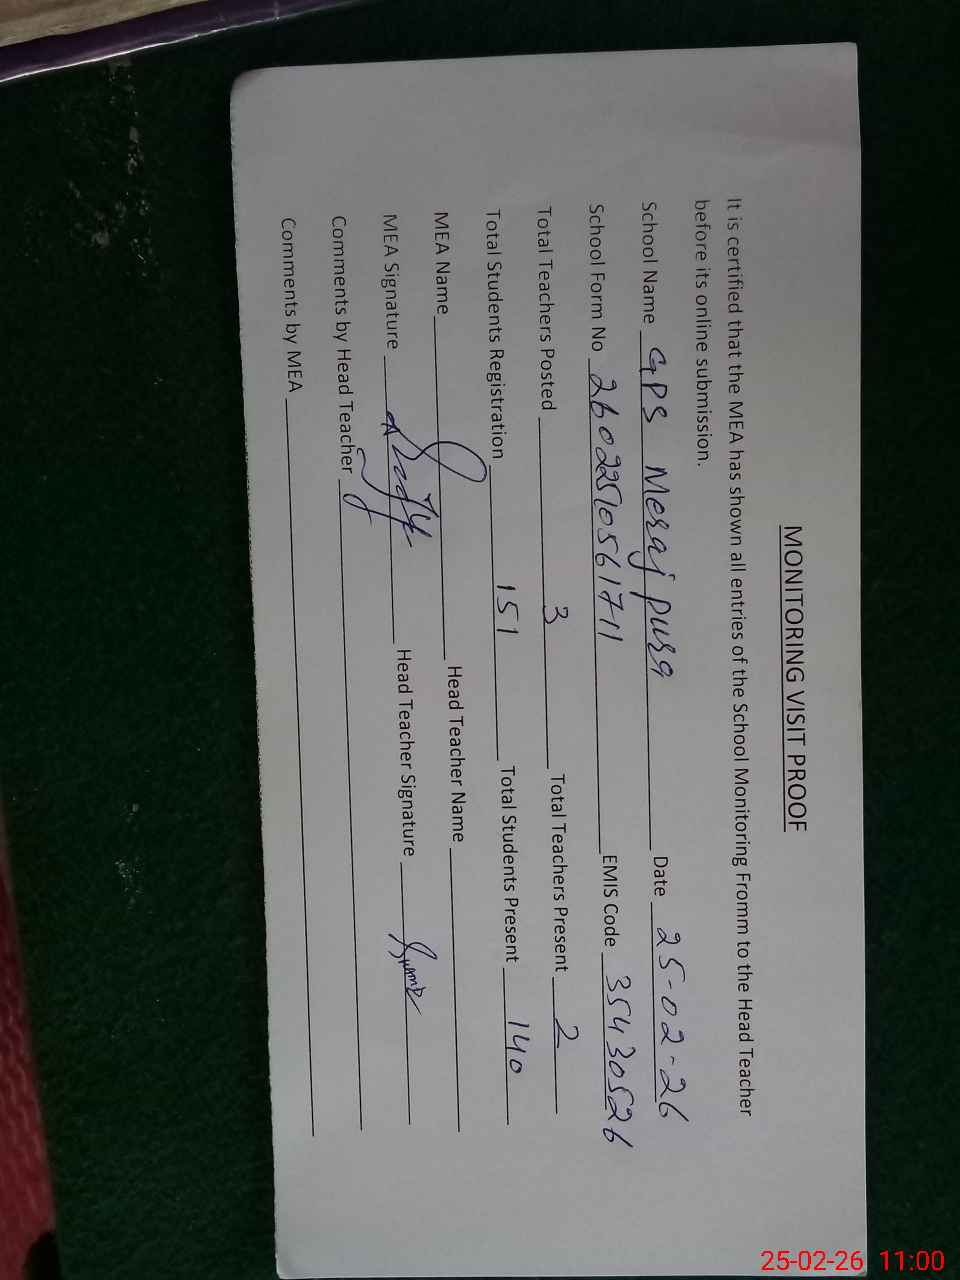 MONITORING VISIT PROOF
It is certified that the MEA has shown all entries of the School Monitoring Fromm to the Head Teacher
before its online submission.
School Name GPS Meraj pura Date 25-02-26
School Form No 26022510561711 EMIS Code 35430526
Total Teachers Posted 3 Total Teachers Present 2
Total Students Registration 151 Total Students Present 140
MEA Name Head Teacher Name
MEA Signature Head Teacher Signature
Comments by Head Teacher
Comments by MEA
25-02-26 11:00